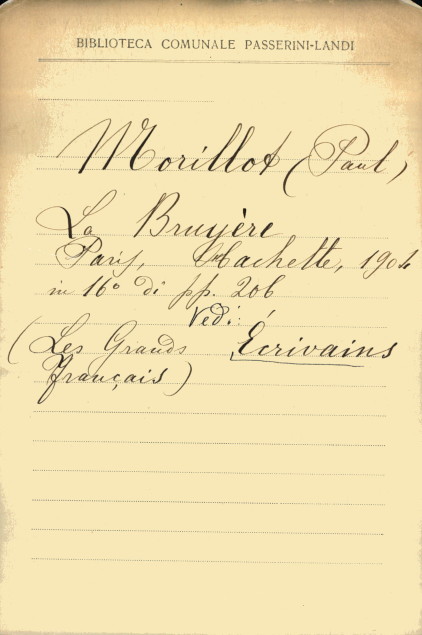 BIBLIOTECA COMUNALE PASSERINI-LANDI
Morillot (Paul)
La Bruyère
Paris, Hachette, 1904
in 16° di pp. 206
Vedi:
(Les Grands Écrivains
français)